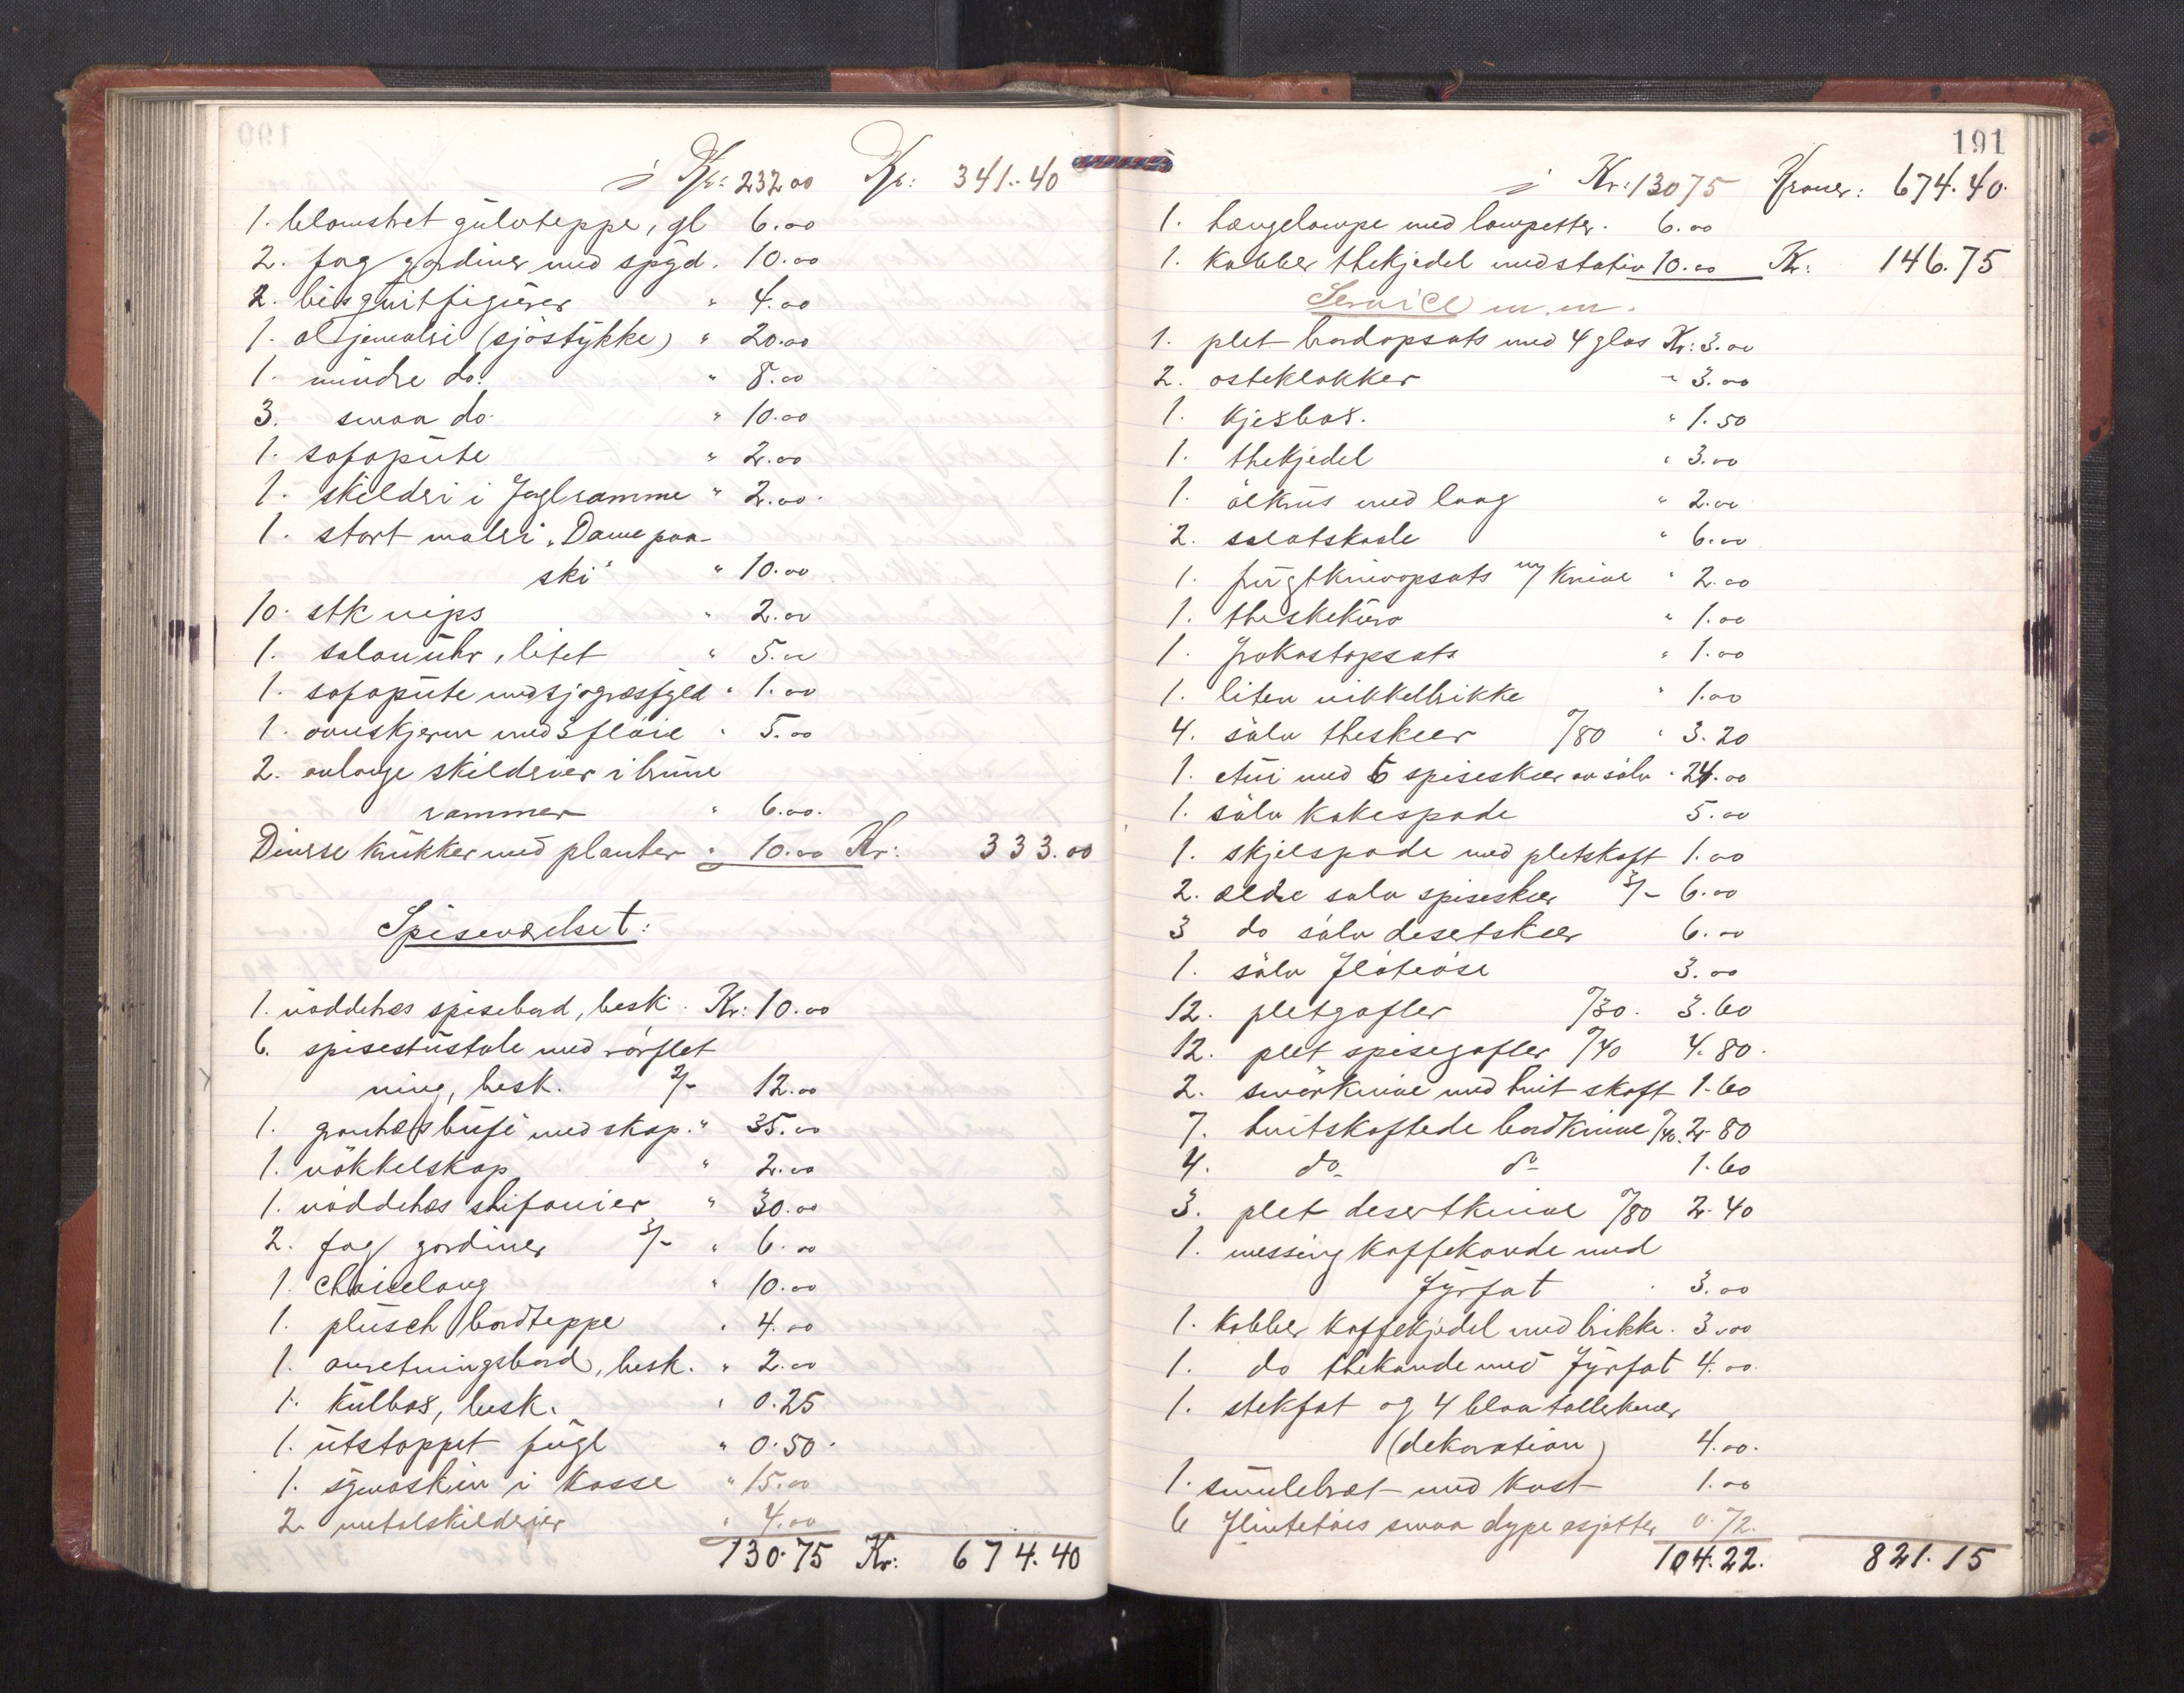 Kr: 232.00 Kr: 341.40
1. blomstret gulvteppe, gl 6.00
2. fag gardiner med spyd. 10.00
2. bisquitfigurer " 4.00
1. oljemaleri (sjøstykke) " 20.00
1. mindre do. " 8.00
3. smaa do. " 10.00
1. sofapute " 2.00
1. skilderi i fuglramme " 2.00.
1. stort maleri "Dame paa
ski" " 10.00
10. stk nips " 2.00
1. salonuhr, litet " 5.00
1. sofapute med sjøgræsfyld " 1.00
1. ovnskjerm med 3 fløie " 5.00
2. avlange skilderier i brune
rammer " 6.00.
Diverse krukker med planter " 10.00 Kr: 333.00
Spiseværelset:
1. nøddetræs spisebord, besk. Kr: 10.00
6. spisestustole med rørflet
ning, besk. 2/- 12.00
1. grantræs bufé med skap. " 35.00
1. nøkkelskap " 2.00
1. nøddetræs shifonier " 30.00
2. fag gardiner 3/- " 6.00
1. Chaiselong " 10.00
1. plüsch bordteppe " 4.00
1. anretningsbord, besk. " 2.00
1. kulbox, besk. " 0.25
1. utstoppet fugl " 0.50.
1. symaskin i kasse " 15.00
2. metalskilderier " 4.00
130.75 Kr: 674.40
191
Kr: 130 75 Kroner: 674.40.
1. hængelampe med lampetter. 6.00
1. kobber thekjedel med stativ 10.00 Kr: 146.75
Service m.m.
1. plet bordopsats med 4 glas Kr: 3.00
2. osteklokker " 3.00
1. kjexbox. " 1.50
1. thekjedel " 3.00
1. ølkrus med laag " 2.00
2. salatskaale " 6.00
1. frugtknivopsats m/ knive " 2.00
1. theskekurv " 1.00
1. frokostopsats " 1.00
1. liten nikkelbrikke " 1.00
4. sølv theskeer %80 " 3.20
1. etui med 6 spiseskeer av sølv " 24.00
1. sølv kakespade 5.00
1. skjelspade med pletskaft 1.00
2. ældre sølv spiseskeer 3/- 6.00
3 do sølv desertskeer 6.00
1. sølv fløteøse 3.00
12. pletgafler %30. 3.60
12. plet spisegafler %40 4.80.
2. smørknive med hvit skaft 1.60
7. hvitskaftede bordknive %40. 2.80
4. do do 1.60
3. plet desertknive %80 2.40
1. messing kaffekande med
fyrfat . 3.00
1. kobber kaffekjedel med brikke. 3.00
1. do thekande med fyrfat 4.00.
1. stekfat og 4 blaa tallerkener
(dekoration) 4.00.
1. smulebræt med kost 1.00
6 flintetøis smaa dype asjetter 0.72.
104.22. 821.15